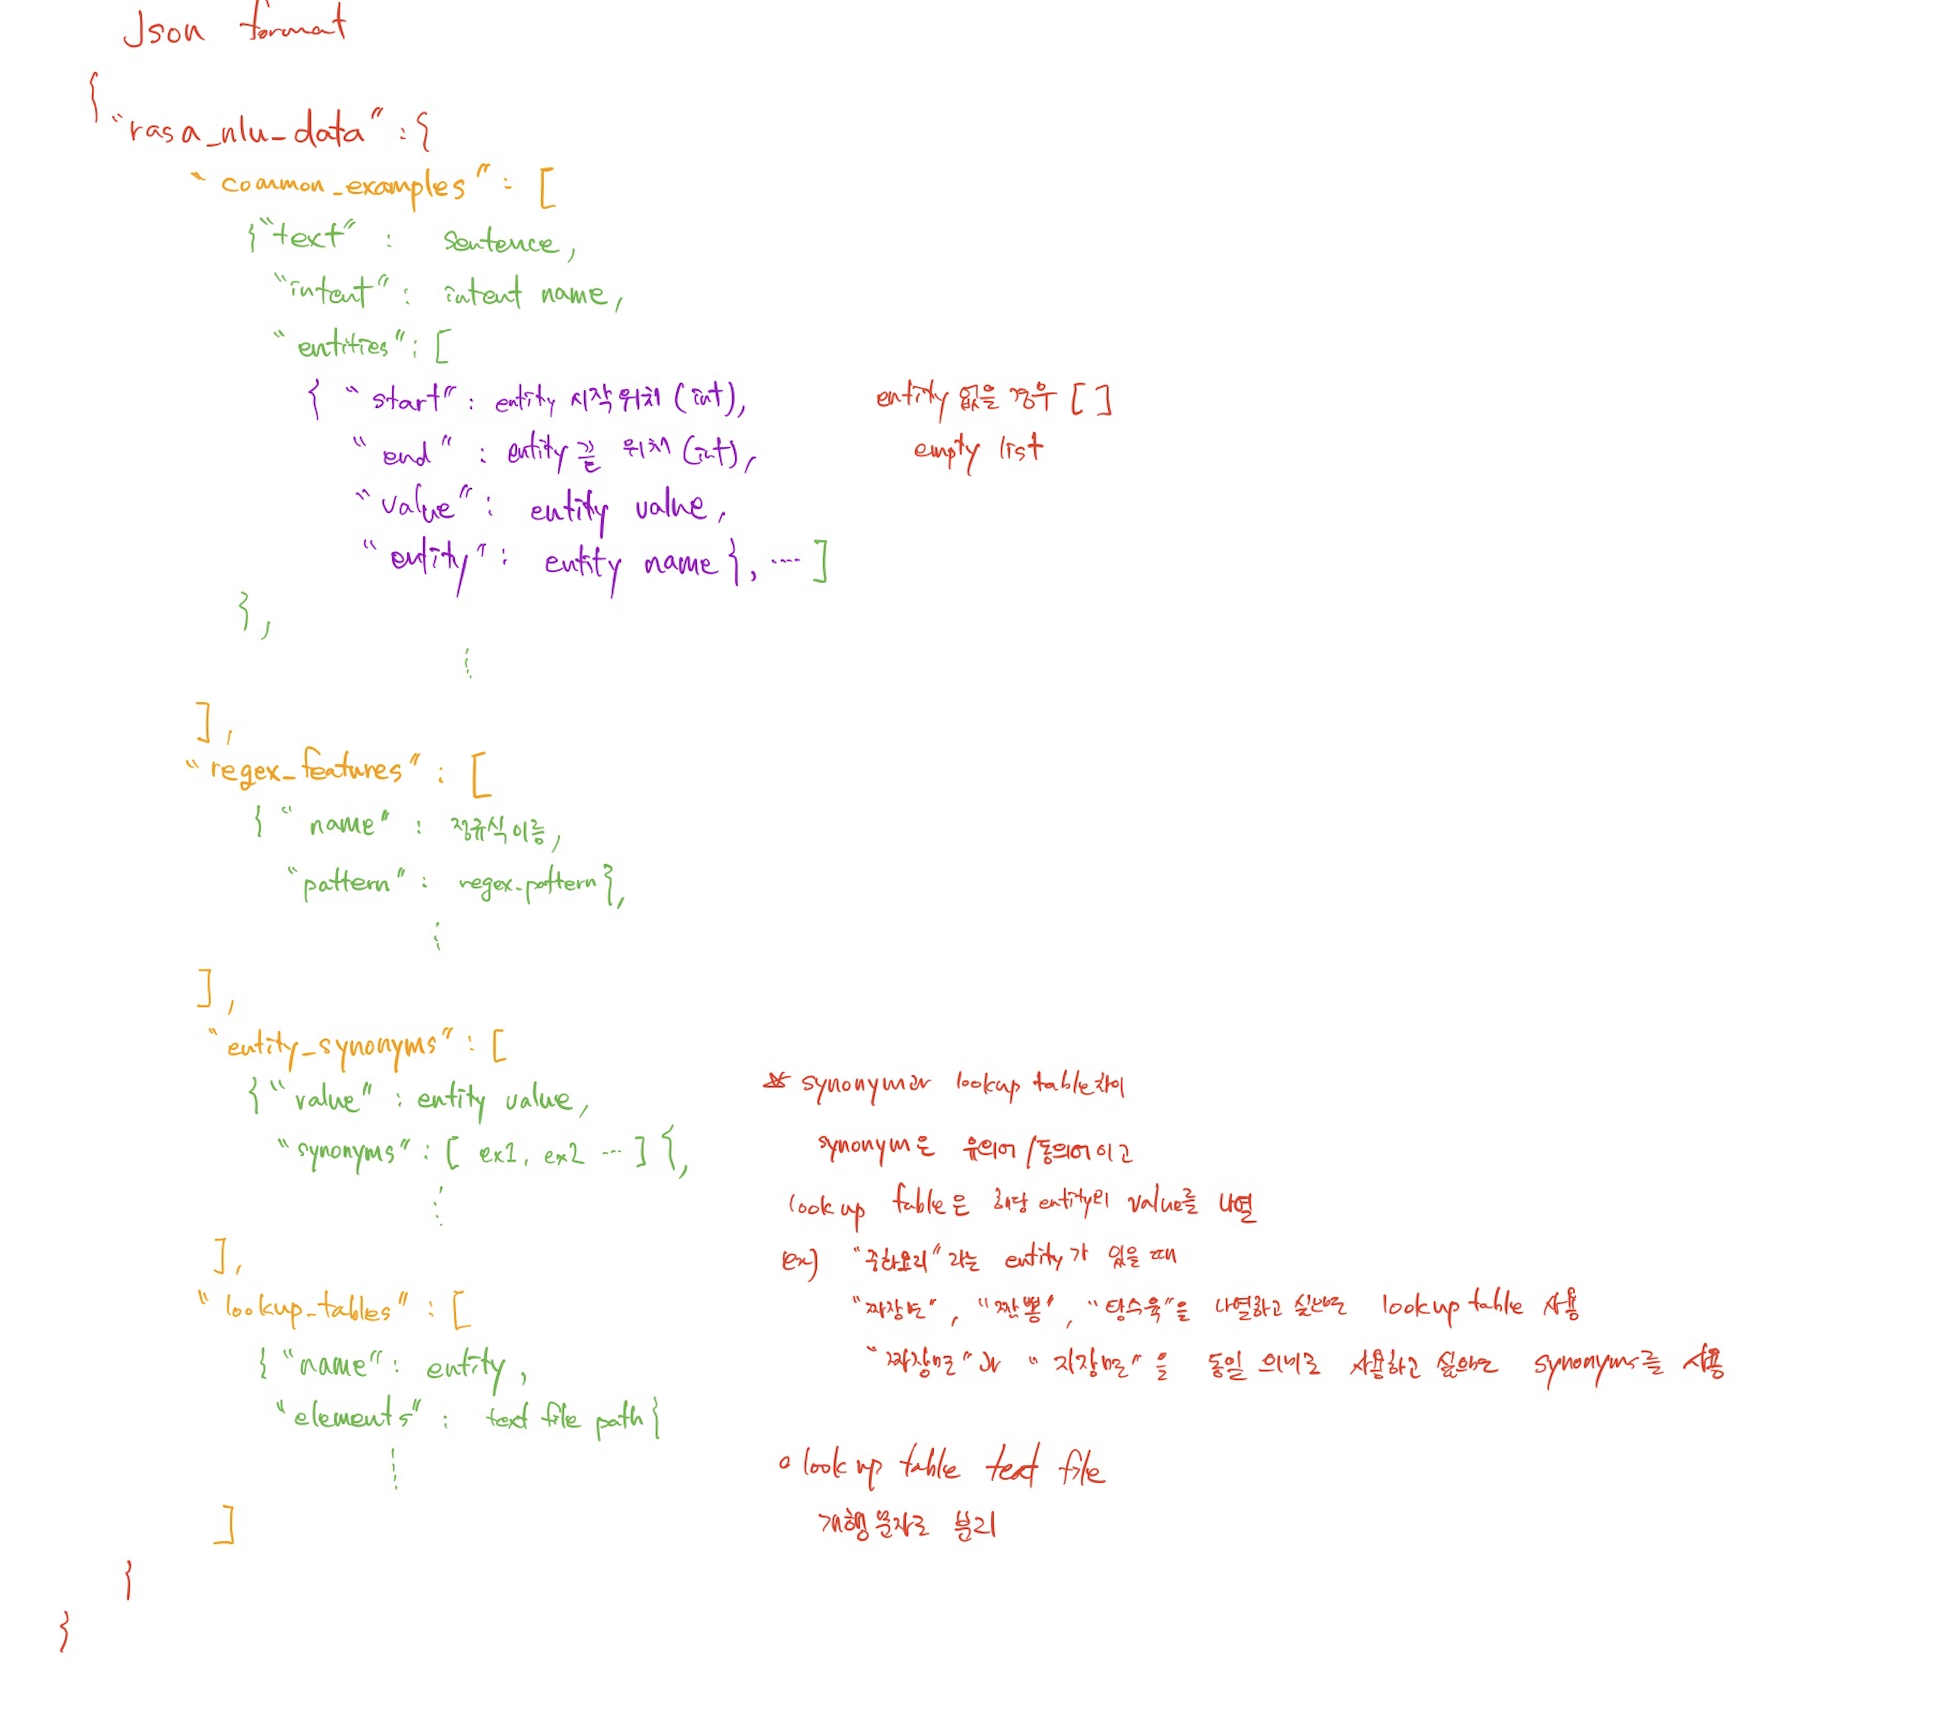 Json format
{
"rasa_nlu_data" : {
"common_examples" : [
{"text" : sentence,
"intent" : intent name,
"entities" : [
{ "start" : entity 시작 위치 (int),
entity 없을 경우 [ ]
"end" : entity 끝 위치 (int),
empty list
"value" : entity value,
"entity" : entity name}, ... ]
},
⋮
],
"regex_features" : [
{ "name" : 정규식 이름,
"pattern" : regex_pattern},
⋮
],
"entity_synonyms" : [
{"value" : entity value,
"synonyms" : [ ex1, ex2 ... ] {,
⋮
],
"lookup_tables" : [
{ "name" : entity,
"elements" : text file path}
⋮
]
}
}
※ synonym과 lookup table차이
synonym은 유의어 / 동의어이고
lookup table은 해당 entity의 value를 나열
ex) "중화요리"라는 entity가 있을 때
"짜장면", "짬뽕", "탕수육"을 나열하고 싶으면 lookup table 사용
"짜장면"과 "자장면"을 동일 의미로 사용하고 싶으면 synonyms를 사용
o lookup table text file
개행 문자로 분리